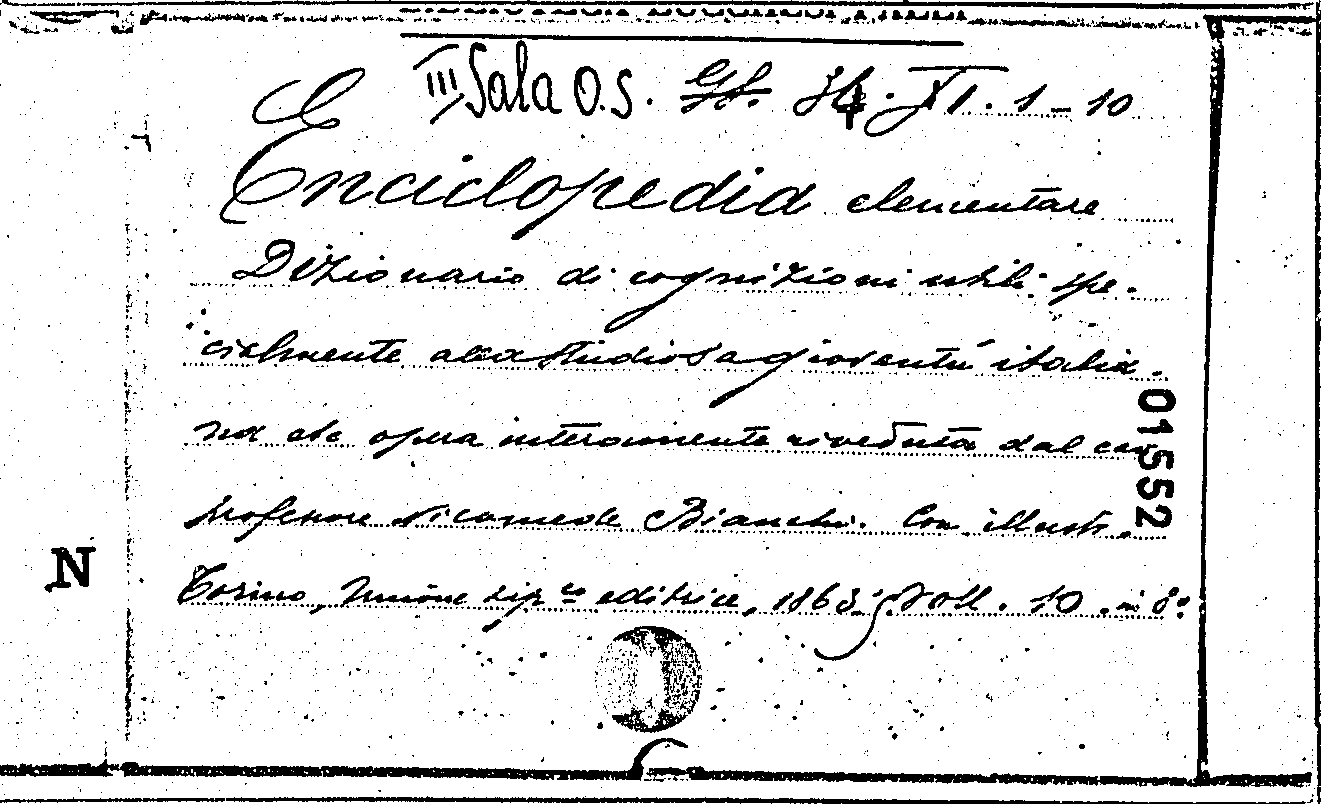 III Sala O.S. XI. 1-10
Enciclopedia elementare
Dizionario di cognizioni utili spe-
cialmente alla studiosa gioventú italia-
na etc opera interamente riveduta dal cav
professore Nicomede Bianchi. Con illustr.
Torino, Unione tip.co editrice, 1863; Voll. 10. in 8º
01552
N